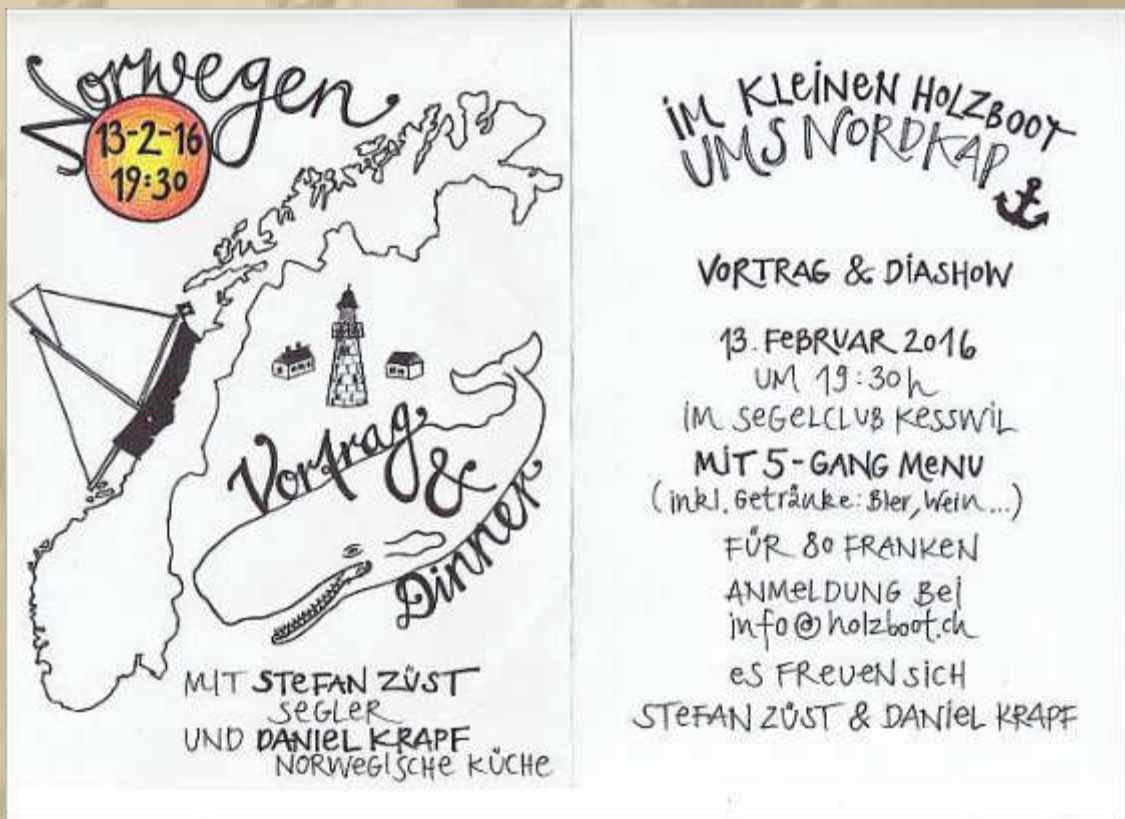 Norwegen
13-2-16
19:30
Vortrag
&
Dinner
MIT STEFAN ZÜST
SEGLER
UND DANIEL KRAPF
NORWEGISCHE KÜCHE
IM KLEINEN HOLZBOOT
UMS NORDKAP
VORTRAG & DIASHOW
13. FEBRUAR 2016
UM 19:30h
IM SEGELCLUB KESSWIL
MIT 5-GANG MENU
(inkl. Getränke: Bier, Wein...)
FÜR 80 FRANKEN
ANMELDUNG BEI
info@holzboot.ch
ES FREUEN SICH
STEFAN ZÜST & DANIEL KRAPF